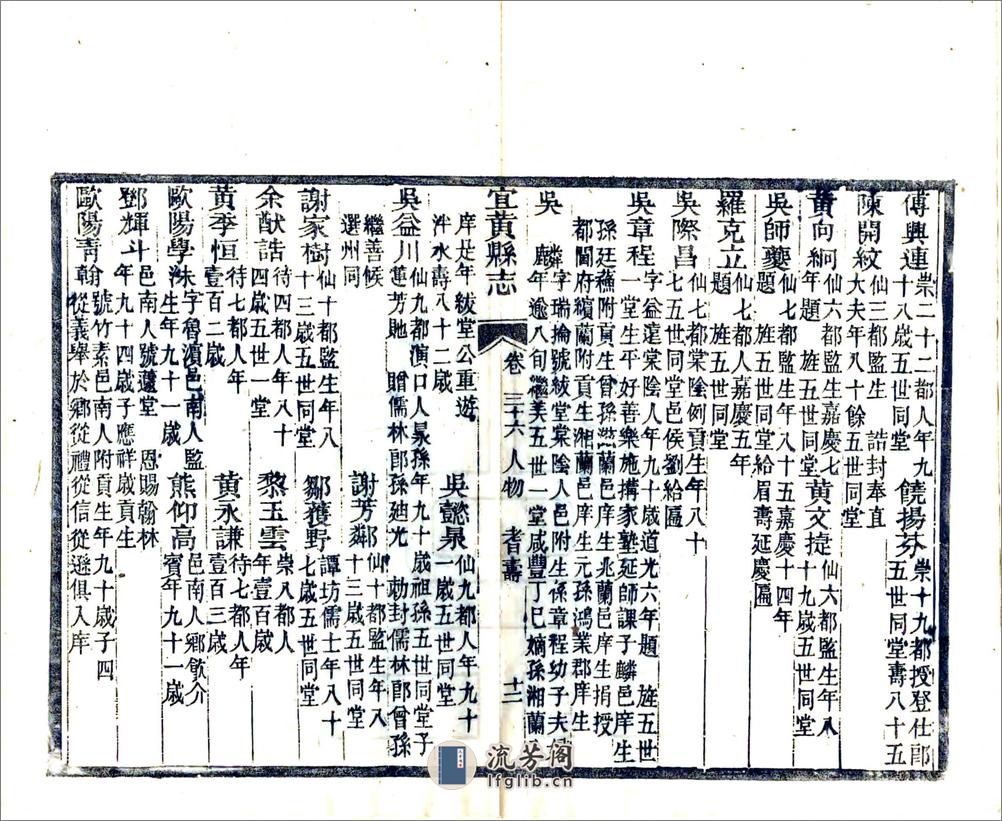 傅興連崇二十二都人年九十八歲五世同堂　饒揚芬崇十九都授登仕郎五世同堂壽八十五
陳開紋仙三都監生　誥封奉直大夫年八十餘五世同堂
黃向絅仙六都監生嘉慶七年題　旌五世同堂　黃文捷仙六都監生年八十九歲五世同堂
吳師夔仙七都監生年八十五嘉慶十四年題　旌五世同堂給眉壽延慶匾
羅克立仙七都人嘉慶五年題　旌五世同堂
吳際昌仙七都棠陰例貢生年八十七五世同堂邑侯劉給匾
吳章程字益蘧棠陰人年九十歲道光六年題　旌五世一堂生平好善樂施搆家塾延師課子麟邑庠生
孫廷蕣附貢生曾孫滋蘭邑庠生兆蘭邑庠生捐授都閫府績蘭附貢生湘蘭邑庠生元孫鴻業郡庠生
吳　麟字瑞掄號紱堂棠陰人邑附生係章程幼子夫婦鹿年逾八旬繼美五世一堂咸豐丁巳嫡孫湘蘭
宜黃縣志　卷三十六人物　耆壽　十二
庠是年紱堂公重遊泮水壽八十二歲　吳懿杲仙九都人年九十一歲五世同堂
吳益川仙九都演口人杲孫年九十歲祖孫五世同堂子蓮芳貤　贈儒林郎孫廸光　勅封儒林郎曾孫
繼善候選州同　謝芳鄰仙十都監生年八十三歲五世同堂
謝家樹仙十都監生年八十三歲五世同堂　鄒獲野譚坊儒士年八十七歲五世同堂
余猷誥待四都人年八十四歲五世一堂　黎玉雲崇八都人年壹百歲
黃季恒待七都人年壹百二歲　黃永謙待七都人年壹百三歲
歐陽學洙字魯濱邑南人監生年九十一歲　熊仰高邑南人鄉飲介賓年九十一歲
鄧輝斗邑南人號蘧堂　恩賜翰林年九十四歲子應祥歲貢生
歐陽青翰號竹素邑南人附貢生年九十歲子四從義舉於鄉從禮從信從遜俱入庠
流芳阁
lfglib.cn